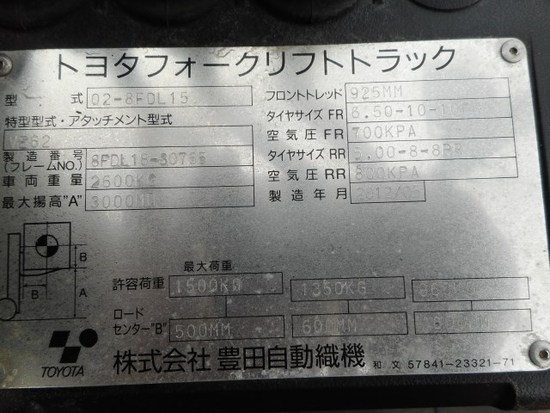 トヨタフォークリフトトラック
型式 02-8FDL15
特型型式・アタッチメント型式
製造番号(フレームNO)
車両重量 2600KG
最大揚高"A"
フロントトレッド 925MM
タイヤサイズ FR 6.50-10-
空気圧 FR 700KPA
タイヤサイズ RR
空気圧 RR
製造年月
B
B
A
最大荷重
許容荷重 1500KG 1350KG
ロードセンター"B" 500MM
TOYOTA
株式会社 豊田自動織機
和文 57841-23321-71